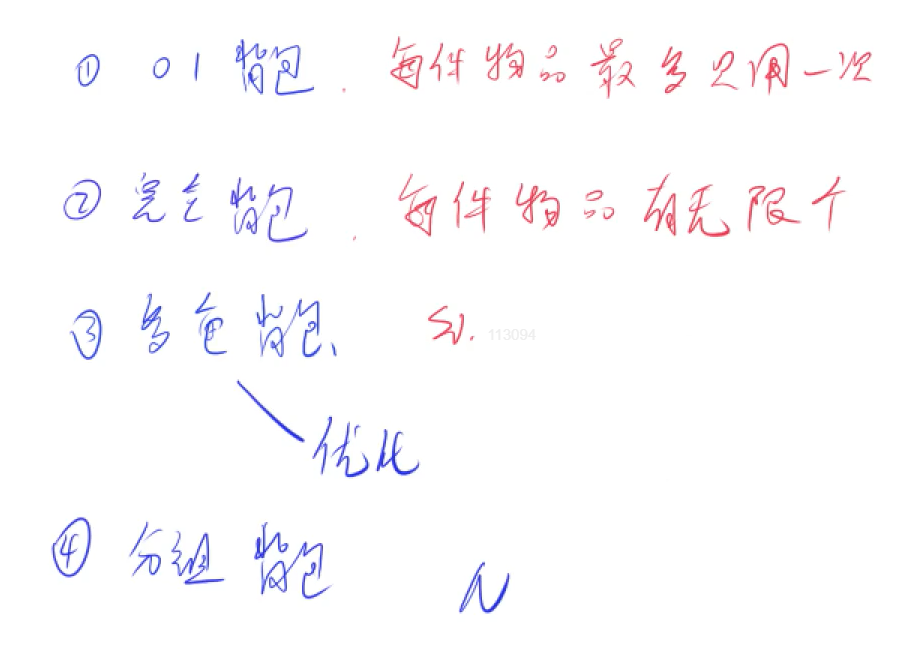 ① 01背包. 每件物品最多只用一次
② 完全背包. 每件物品有无限个
③ 多重背包、 si.
113094
优化
④ 分组背包 N